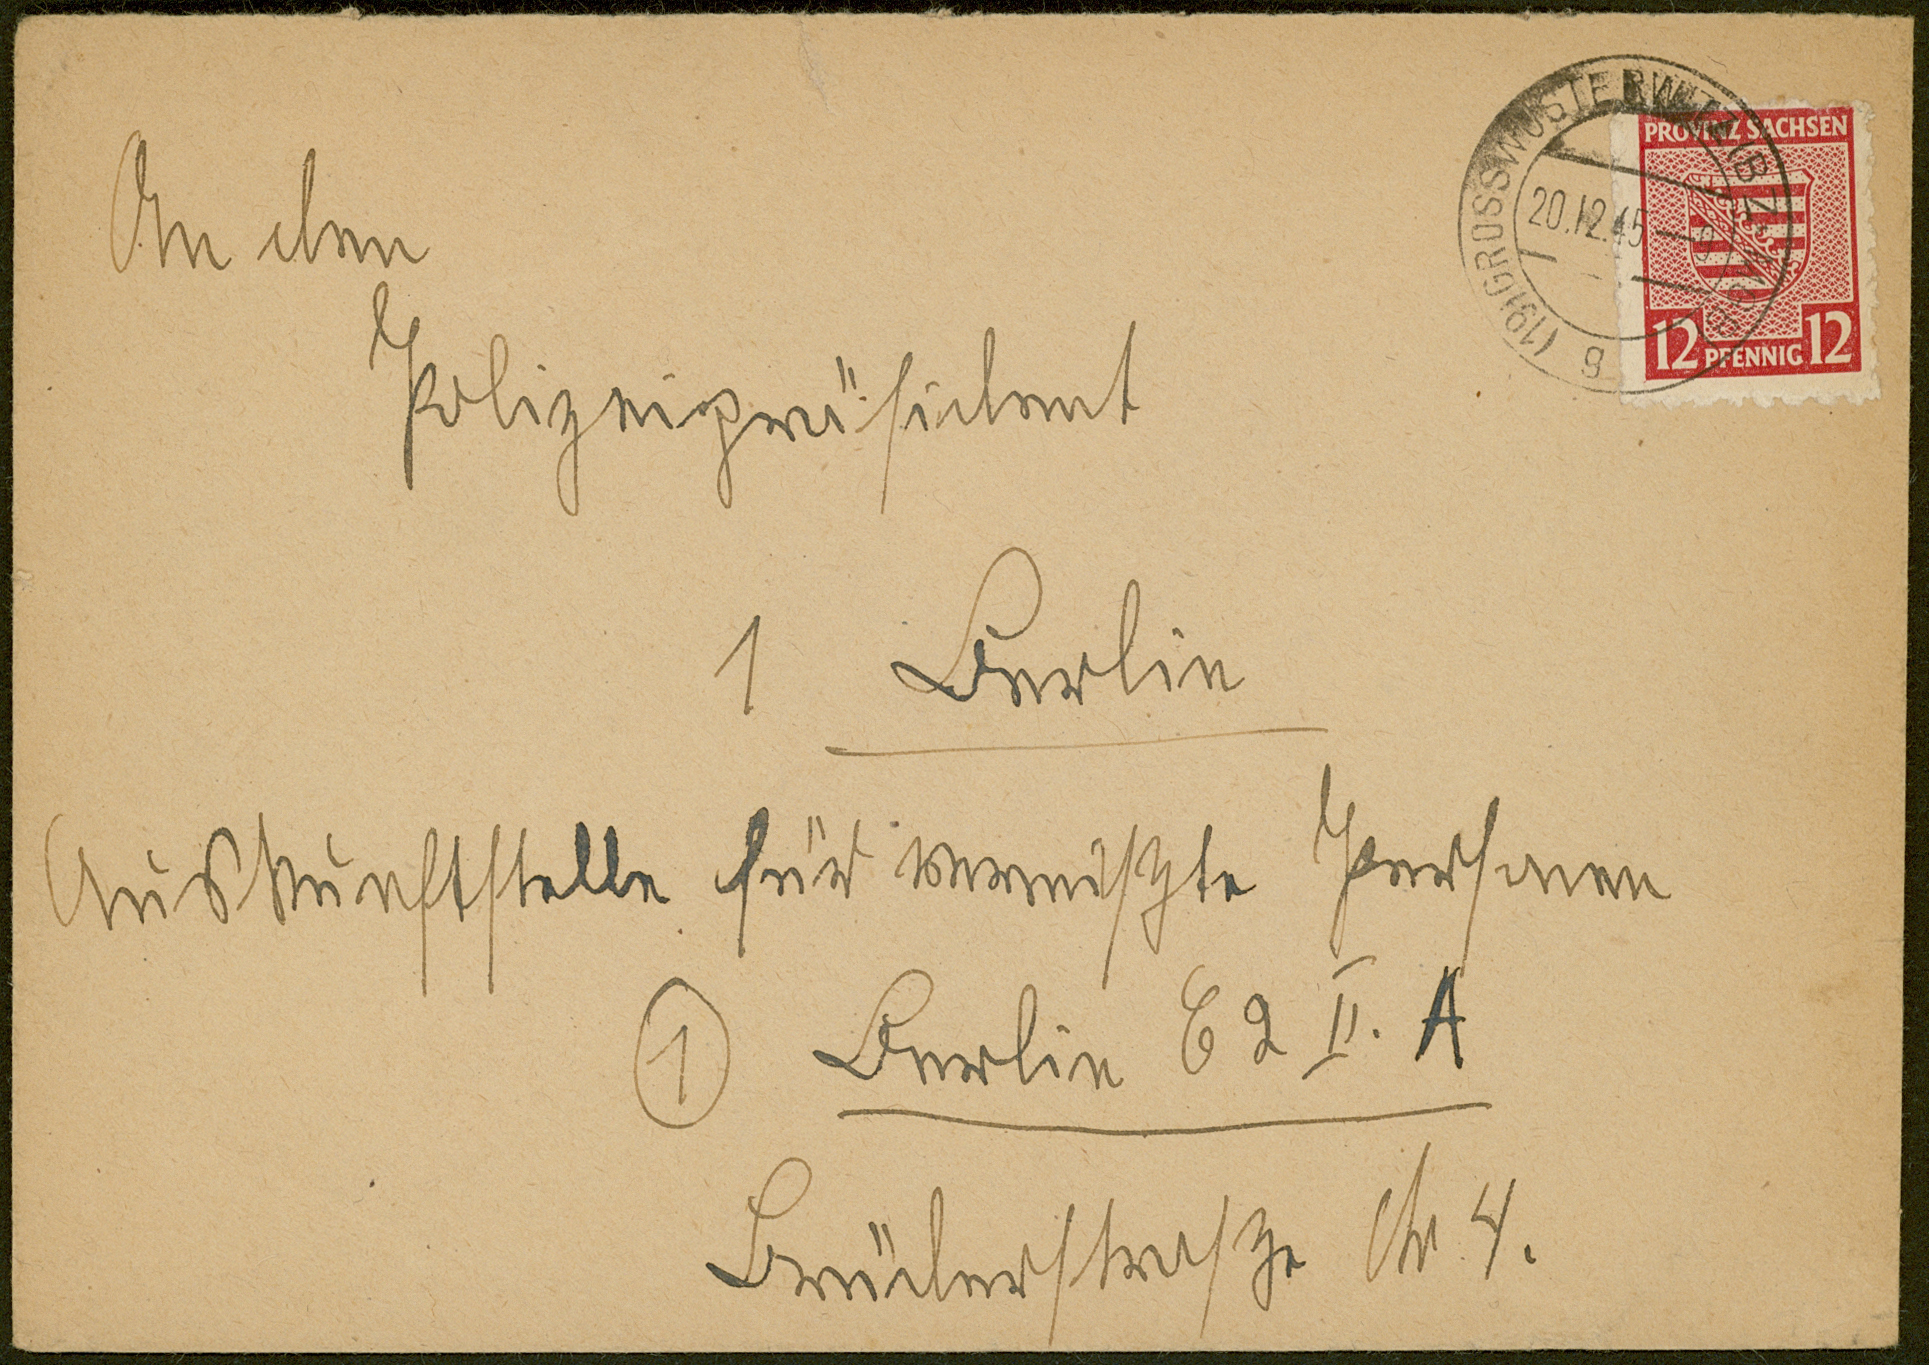 An den
Polizeipräsident
1 Berlin
Auskunftstelle für vermißte Personen
1 Berlin C 2 II. A
Brüderstraße Nr 4.
(19) GROSSWUSTERWITZ (BZ. MGDB) g
20.12.45 - 9
PROVINZ SACHSEN
12 PFENNIG 12